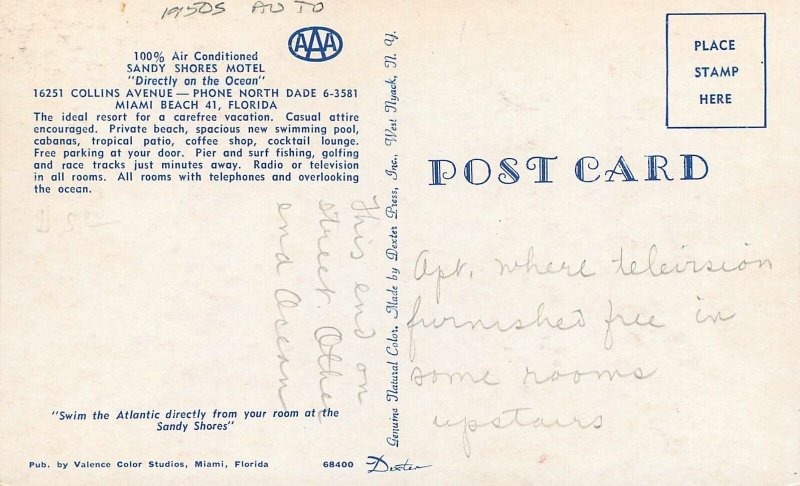 1950s AUTO
AAA
100% Air Conditioned
SANDY SHORES MOTEL
"Directly on the Ocean"
16251 COLLINS AVENUE — PHONE NORTH DADE 6-3581
MIAMI BEACH 41, FLORIDA
The ideal resort for a carefree vacation. Casual attire
encouraged. Private beach, spacious new swimming pool,
cabanas, tropical patio, coffee shop, cocktail lounge.
Free parking at your door. Pier and surf fishing, golfing
and race tracks just minutes away. Radio or television
in all rooms. All rooms with telephones and overlooking
the ocean.
This end on
street. Other
end Ocean
"Swim the Atlantic directly from your room at the
Sandy Shores"
Pub. by Valence Color Studios, Miami, Florida
68400
Dexter
Genuine Natural Color. Made by Dexter Press, Inc. West Nyack, N. Y.
PLACE
STAMP
HERE
POST CARD
Apt. where television
furnished free in
some rooms
upstairs